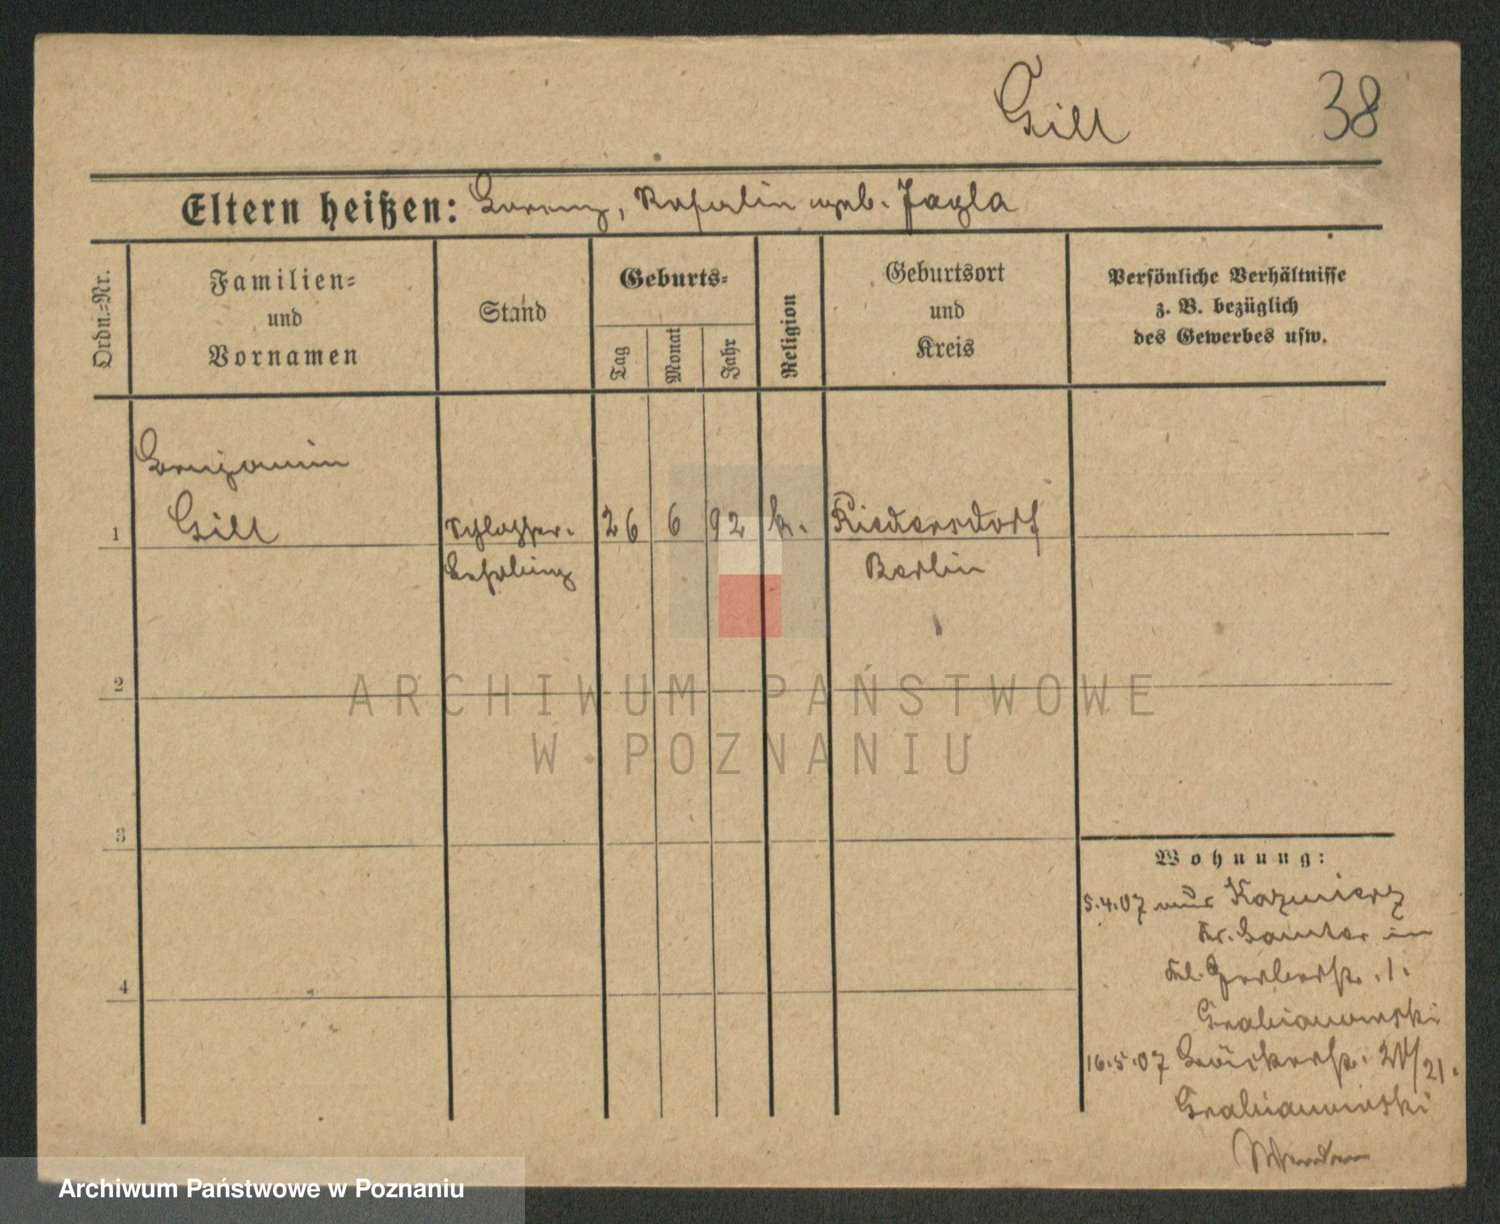 Gill 38
Eltern heißen: Lorenz, Rosalin geb. Jagla
Ordn.-Nr.
Familien-
und
Vornamen
Stand
Geburts-
Tag
Monat
Jahr
Religion
Geburtsort
und
Kreis
Persönliche Verhältnisse
z. B. bezüglich
des Gewerbes usw.
Benjamin
1 Gill Schlosser- 26 6 92 k. Riedersdorf
Lehrling Berlin
2
3
4
Wohnung:
5.4.07 aus Kazmierz
Kr. Samter in
Gerberstr. 1.
Grabianowski
16.5.07 Bäckerstr. 20/21.
Grabianowski
ARCHIWUM PAŃSTWOWE
W POZNANIU
Archiwum Państwowe w Poznaniu